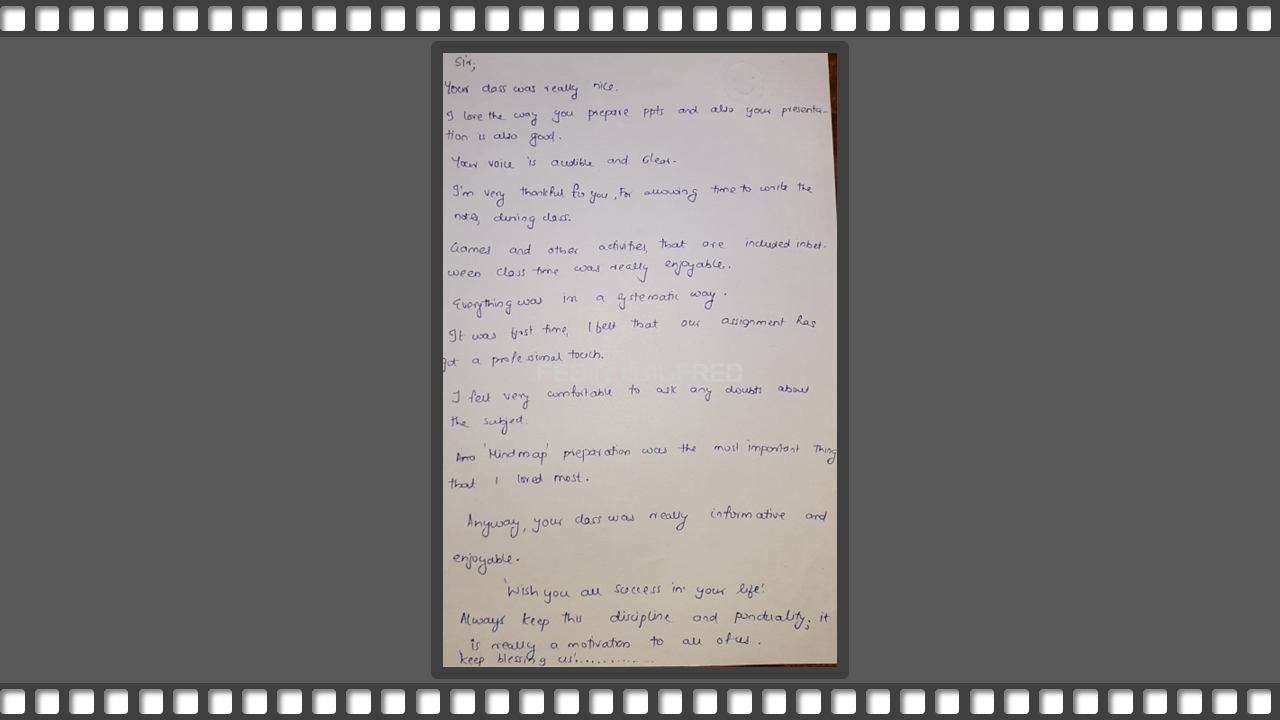 Sir,
Your class was really nice.
I love the way you prepare ppts and also your presenta-
tion is also good.
Your voice is audible and clear.
I'm very thankful for you, for allowing time to write the
notes, during class.
Games and other activities, that are included inbet-
ween class time was really enjoyable..
Everything was in a systematic way.
It was first time, I felt that our assignment has
got a professional touch.
I felt very comfortable to ask any doubts about
the subject.
'Mindmap' preparation was the most important thing
that I loved most.
Anyway, your class was really informative and
enjoyable.
'Wish you all success in your life!
Always keep this discipline and punctuality; it
is really a motivation to all of us.
'keep blessing us'.............